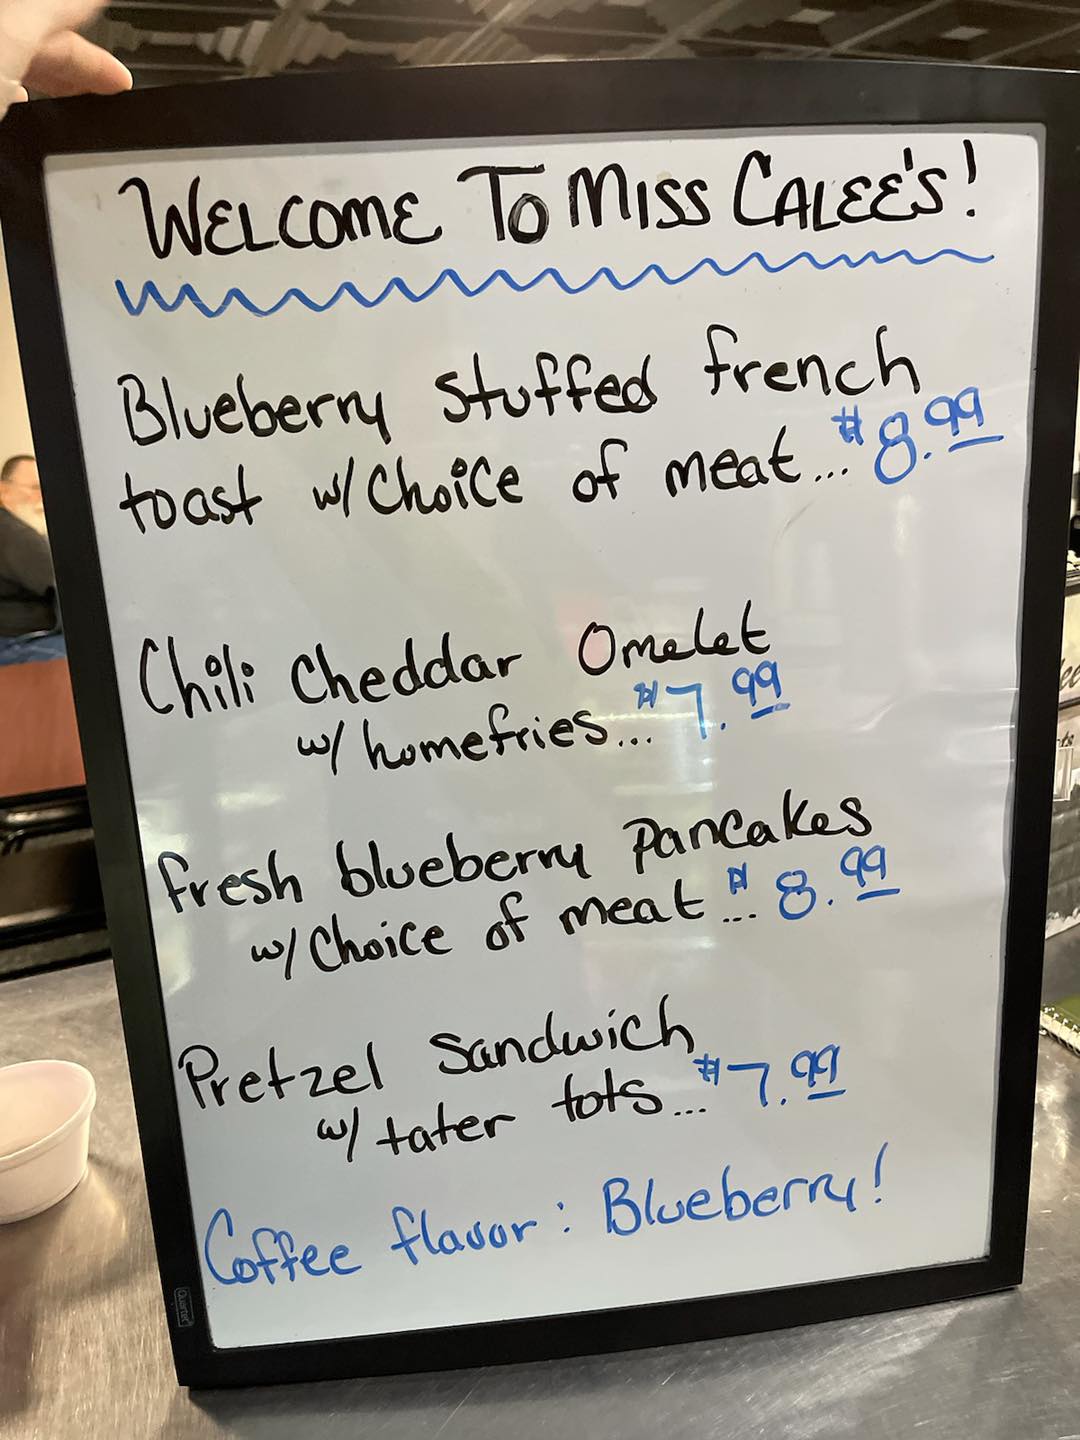 WELCOME TO MISS CALEE'S!
Blueberry stuffed french
toast w/ Choice of meat... $8.99
Chili Cheddar Omelet
w/ homefries... $7.99
fresh blueberry pancakes
w/ Choice of meat... $8.99
Pretzel Sandwich
w/ tater tots... $7.99
Coffee flavor: Blueberry!
Quartet